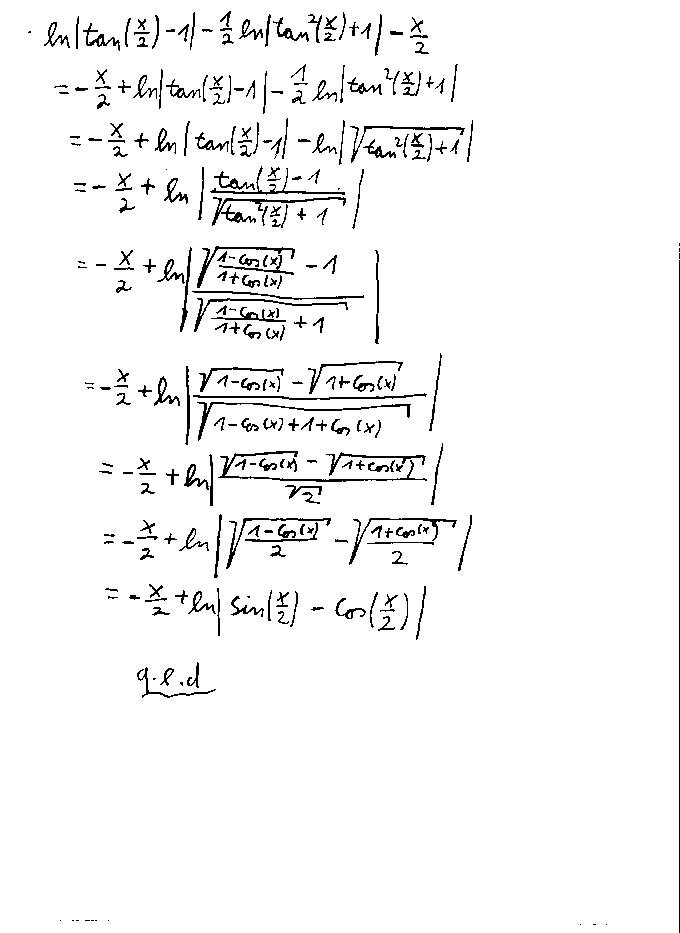 · ln|tan(x/2) -1| - 1/2 ln|tan²(x/2)+1| - x/2
= - x/2 + ln|tan(x/2)-1| - 1/2 ln|tan²(x/2)+1|
= - x/2 + ln|tan(x/2)-1| - ln|√(tan²(x/2)+1)|
= - x/2 + ln|(tan(x/2)-1)/√(tan²(x/2)+1)|
= - x/2 + ln|(√((1-cos(x))/(1+cos(x))) - 1)/√((1-cos(x))/(1+cos(x)) + 1)|
= - x/2 + ln|(√(1-cos(x)) - √(1+cos(x)))/√(1-cos(x)+1+cos(x))|
= - x/2 + ln|(√(1-cos(x)) - √(1+cos(x)))/√2|
= - x/2 + ln|√((1-cos(x))/2) - √((1+cos(x))/2)|
= - x/2 + ln|sin(x/2) - cos(x/2)|
q.e.d